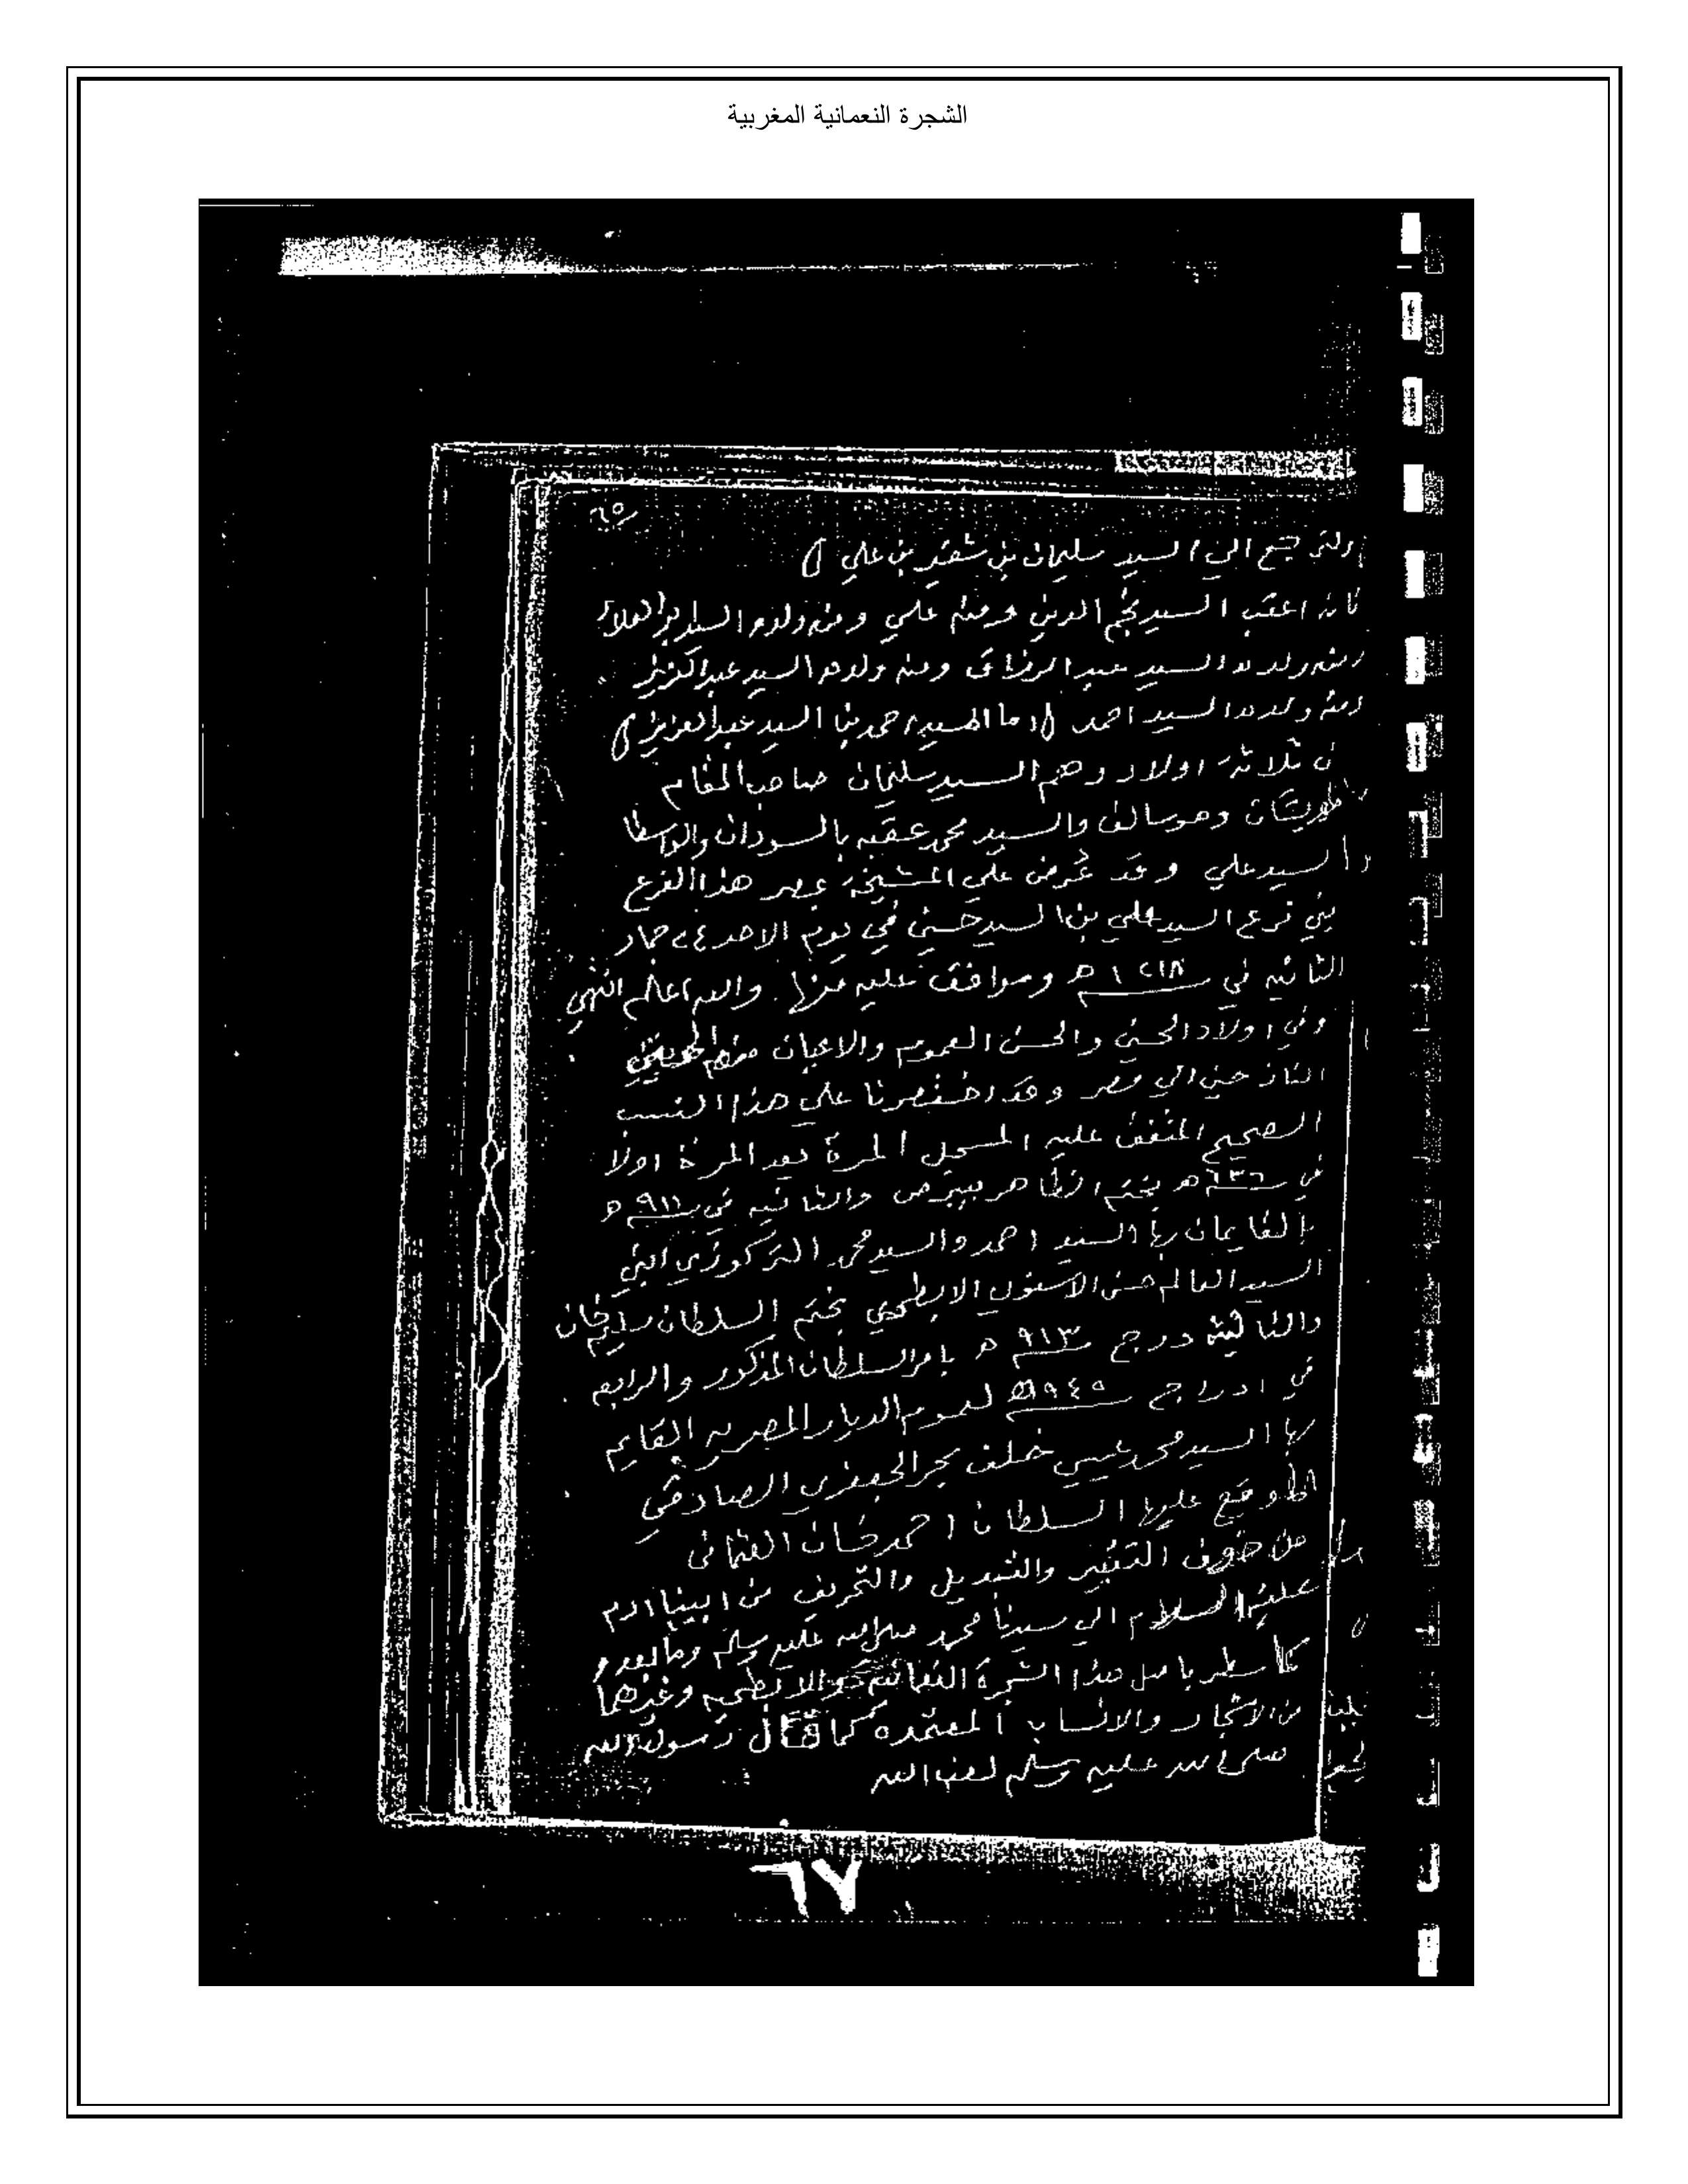 الشجرة النعمانية المغربية
٦٥
ولنرجع الى السيد سليمان بن شقير بن علي
فانه اعقب السيد نجم الدين ومنه علي ومنه ولده السيد
ومنه ولده السيد عبد الرزاق ومنه ولده السيد عبد العزيز
ومنه ولده السيد احمد اما السيد احمد بن السيد عبد العزيز
ثلاثة اولاد وهم السيد سليمان صاحب المقام
والسيد محمد عقبه بالسودان
السيد علي وقد عُرض علي المشيخة بمصر هذا الفرع
فرع السيد علي بن السيد حسين في يوم الاحد ٢٤ جماد
الثانيه في ١٢١٨ ه وموافق عليه منها والله اعلم انتهي
وفي اولاد الحسين والحسن العموم والاعيان منهم
النازحين الي مصر وقد اختصرنا علي هذا النسب
الصحيح المتفق عليه المسجل المرة بعد المرة اولا
في ٦٣٦ ه بختم الظاهر بيبرس والثانيه في ٩١١ ه
القايمان بها السيد احمد والسيد محمد ابني
السيد العالم حسن الابطحي بختم السلطان سليم خان
والثالثة درج ٩١٣ ه بامر السلطان المذكور والرابعه
في ادراج ٩٤٥ ه لعموم الديار المصريه القايم
بها السيد محمد عيسي خلف بحر الجعفري الصادقي
وقع عليها السلطان احمد خان العثماني
من خوف التغيير والتبديل والتحريف من ابينا ادم
عليه السلام الي سيدنا محمد صلى الله عليه وسلم وما بعدهم
كما سطر باصل هذا الشجرة النعمانيه والابطحيه وغيرهما
من الاشجار والانساب المعتمده كما قال رسول الله
صلى الله عليه وسلم لعن الله
٦٧